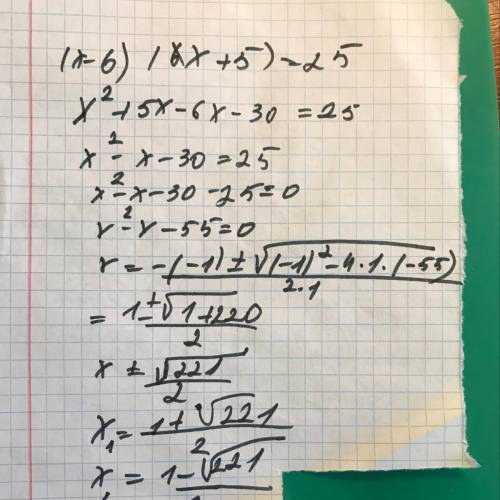 (x-6) (x+5) = 25
x²+5x-6x-30 = 25
x²-x-30 = 25
x²-x-30-25=0
x²-x-55=0
x = -(-1)±√(-1)²-4·1·(-55) / 2·1
= 1±√1+220 / 2
x ± √221 / 2
x₁ = 1+√221 / 2
x = 1-√221